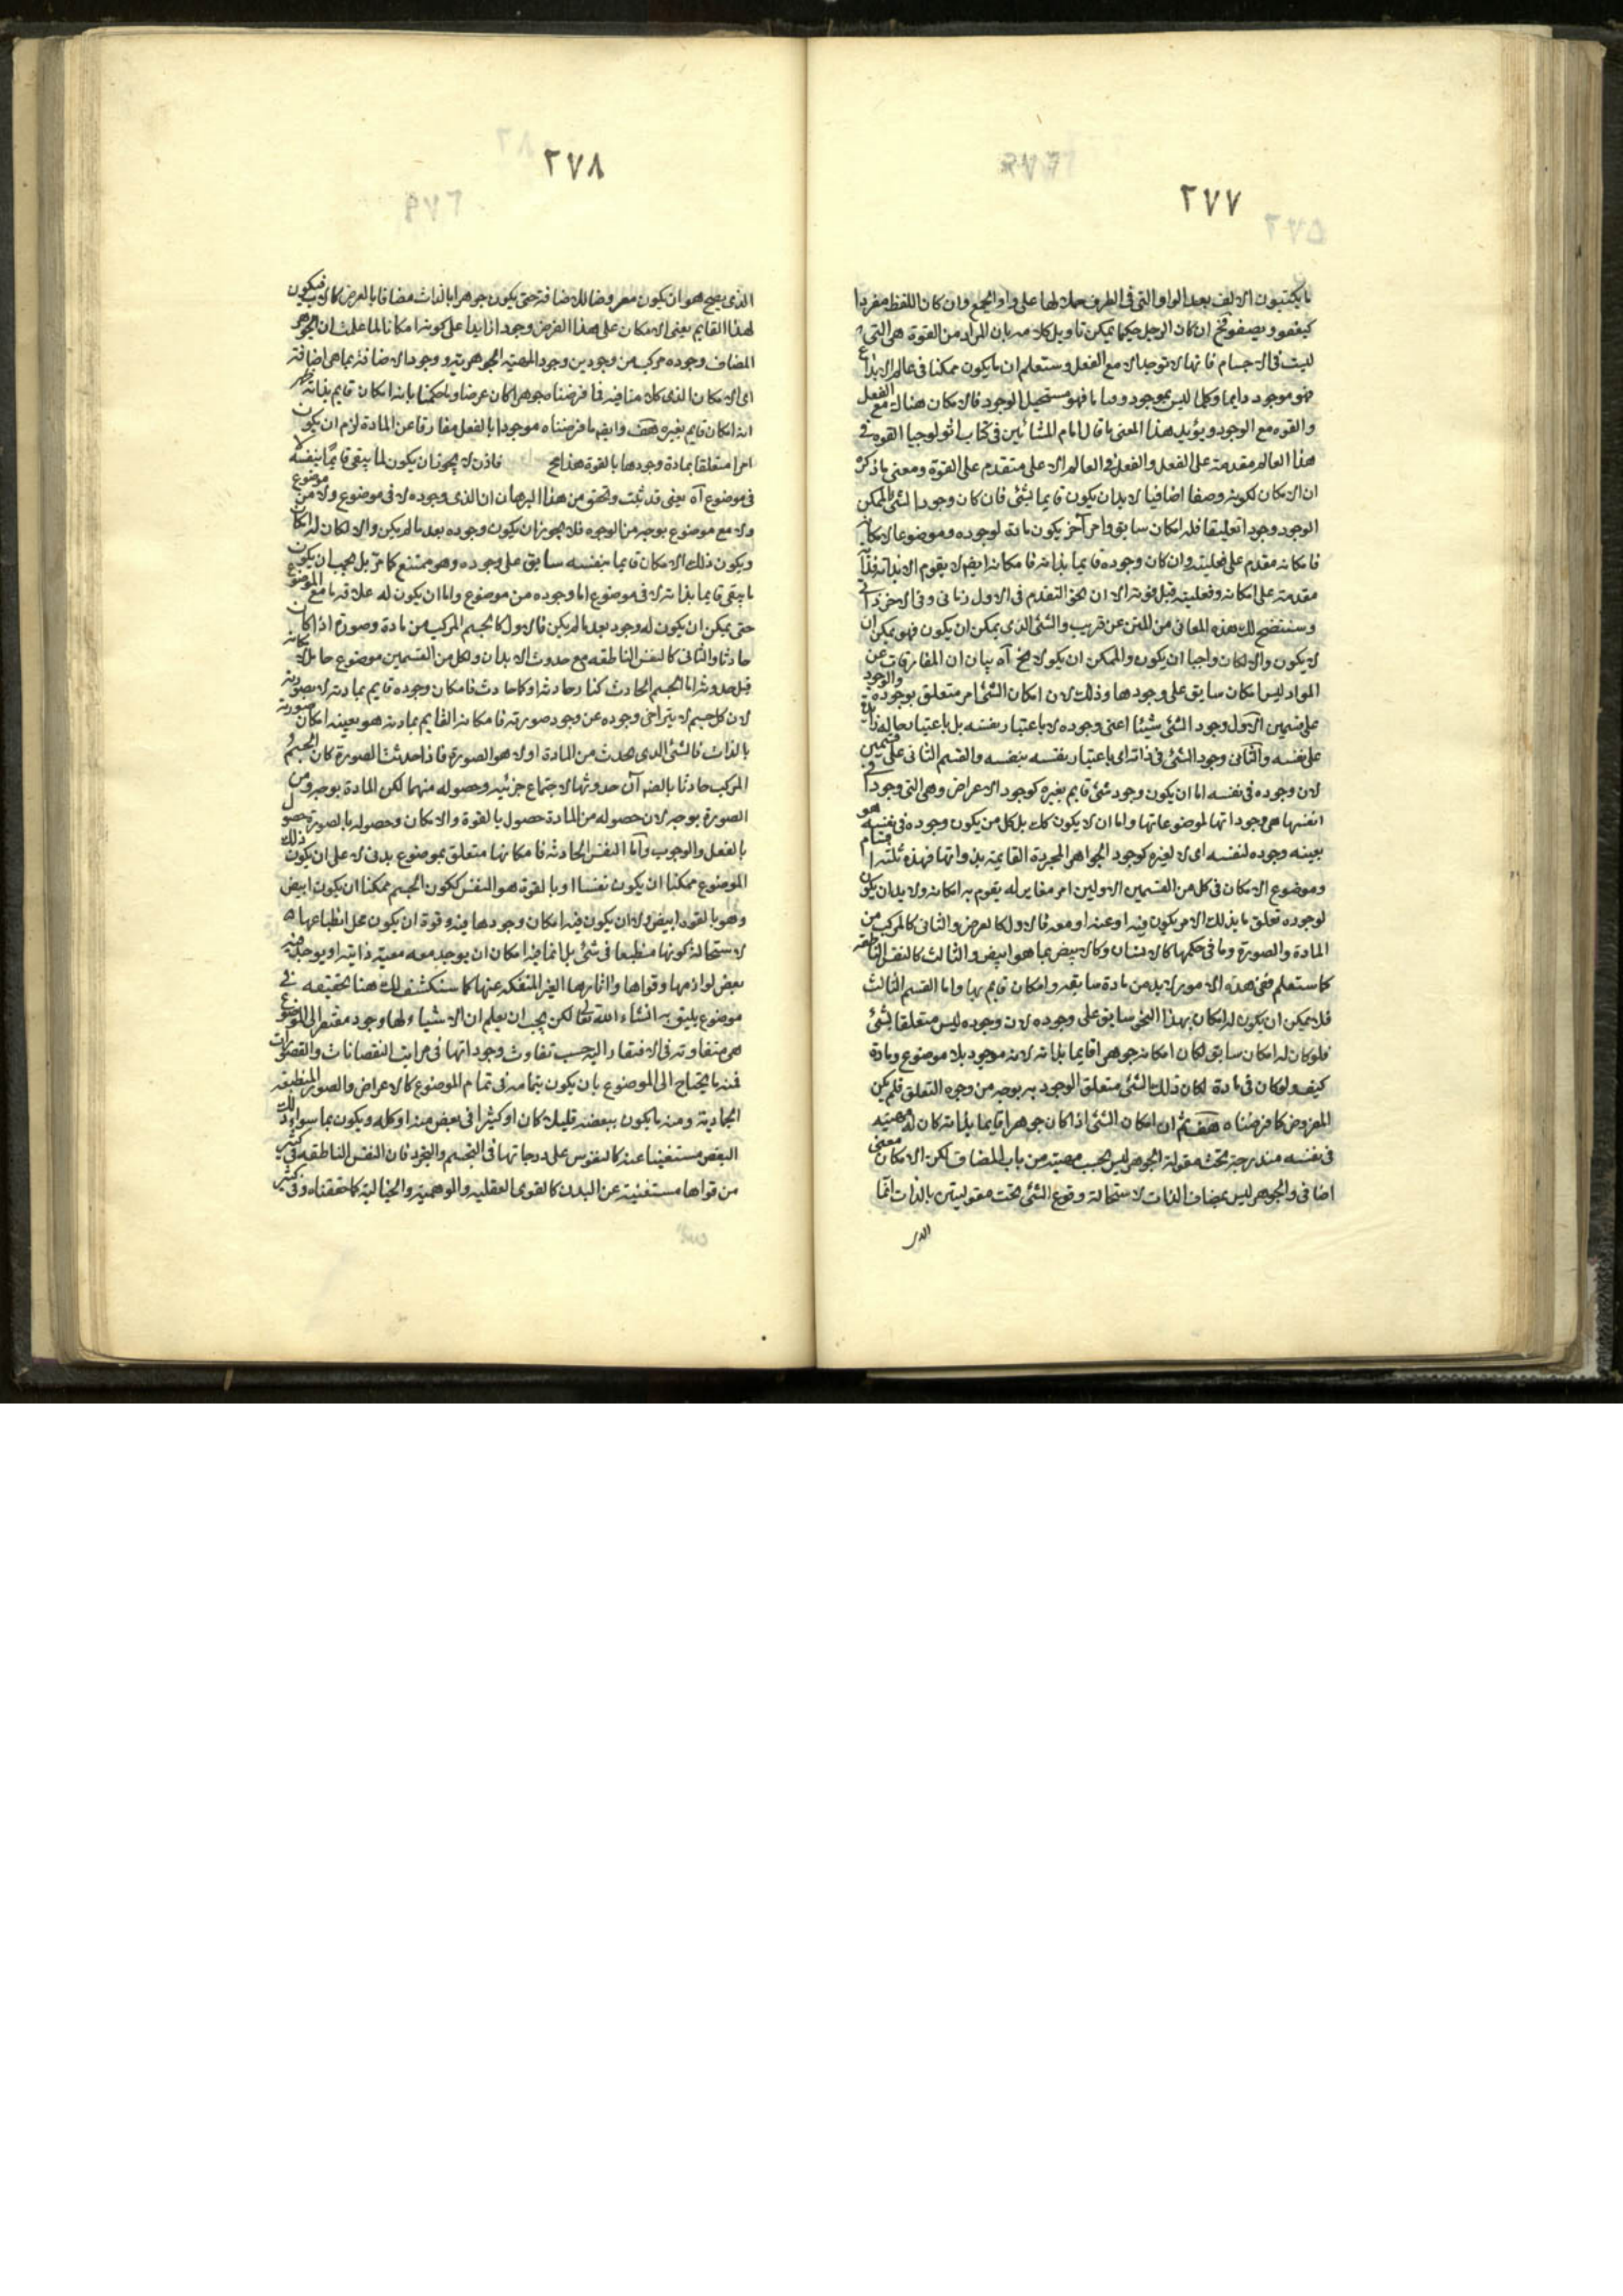 ٢٧٧
ما يكتبون الالف بعد الواو التى فى الطرف حملا لها على واو الجمع وان كان اللفظ مفردا
كيغفو ويصفو ثم ان كان الرجل حكيما يمكن تاويل كلامه بان المراد من القوة هى التى
ليست فى الاجسام فانها لا توجد الا مع الفعل وستعلم ان ما يكون ممكنا فى عالم الابداع
فهو موجود دايما وكلما ليس بموجود دايما فهو مستحيل الوجود فالامكان هناك مع الفعل
والقوه مع الوجود ويؤيد هذا المعنى ما قال امام المشائين فى كتاب اثولوجيا القوه فى
هذا العالم مقدمة على الفعل والفعل فى العالم الاعلى متقدم على القوة ومعنى ما ذكره
ان الامكان لكونه وصفا اضافيا لا بد ان يكون قايما بشئ فان كان وجود الشئ الممكن
الوجود وجودا تعليقا فله امكان سابق وامر آخر يكون مادة لوجوده وموضوعا لامكانه
فامكانه مقدم على فعليته وان كان وجوده قايما بذاته فامكانه ايضا لا يقوم الا بذاته فذاته
مقدمة على امكانه وفعليته قبل قوته الا ان نحو التقدم فى الاول زمانى وفى الاخر ذاتى
وسنتضح لك هذه المعانى من المتن عن قريب والشئ الذى يمكن ان يكون فهو يمكن ان
لا يكون والا لكان واجبا ان يكون والممكن ان يكون لا يخ آه بيان ان المفارقات عن
المواد ليس امكان سابق على وجودها وذلك لان امكان الشئ امر متعلق بوجوده والوجود
على قسمين الاول وجود الشئ شيئا اعنى وجوده لا باعتبار نفسه بل باعتبار حاله
على نفسه والثانى وجود الشئ فى ذاته اى باعتبار نفسه بنفسه والقسم الثانى على قسمين
لان وجوده فى نفسه اما ان يكون وجود شئ قايم بغيره كوجود الاعراض وهى التى وجودا
انفسها هى وجوداتها لموضوعاتها واما ان لا يكون كك بل كل من يكون وجوده فى نفسه هو
بعينه وجوده لنفسه اى لا لغيره كوجود الجواهر المجردة القايمة بذواتها فهذه ثلثة اقسام
وموضوع الامكان فى كل من القسمين الاولين امر مغاير له يقوم به امكانه ولا بد ان يكون
لوجوده تعلق ما بذلك الامر يكون فيه او عنه او معه فالاول كالعرض والثانى كالمركب من
المادة والصورة وما فى حكمها كالانسان وكالابيض بما هو ابيض والثالث كالنفس الناطقه
كما ستعلم ففى هذه الامور لا بد من مادة سابقه وامكان قايم بها واما القسم الثالث
فلا يمكن ان يكون له امكان بهذا النحو سابق على وجوده لان وجوده ليس متعلقا بشئ
فلو كان له امكان سابق لكان امكانه جوهرا قايما بذاته لانه موجود بلا موضوع ومادة
كيف ولو كان فى مادة لكان ذلك الشئ متعلق الوجود به بوجه من وجوه التعلق فلم يكن
المفروض كما فرضناه هف ثم ان امكان الشئ اذا كان جوهرا قايما بذاته كان له مهيته
فى نفسه مندرجة تحت مقولة الجوهر ليس بحسب مهيته من باب المضاف لكن الامكان معنى
اضافى والجوهر ليس بمضاف الذات لاستحالة وقوع الشئ تحت مقولتين بالذات انما
الذى
٢٧٨
الذى يصح هو ان يكون معروضا للاضافة حتى يكون جوهرا بالذات مضافا بالعرض كالاب فيكون
لهذا القايم يعنى الامكان على هذا الفرض وجود زايدا على كونه امكانا لما علمت ان الجوهر
المضاف وجوده مركب من وجودين وجود المهية الجوهرية ووجود الاضافة بما هى اضافة
اى الامكان الذى كلامنا فيه فما فرضناه جوهرا كان عرضا وما حكمنا بانه امكان قايم بذاته ظهر
انه امكان قايم بغيره هف وايضا ما فرضناه موجودا بالفعل مفارقا عن المادة لزم ان يكون
امرا متعلقا بمادة وجودها بالقوة هذا مح فاذن لا يجوز ان يكون لما يبقى قائما بنفسه لا
فى موضوع آه يعنى قد ثبت وتحقق من هذا البرهان ان الذى وجوده لا فى موضوع ولا من موضوع
ولا مع موضوع بوجه من الوجوه فلا يجوز ان يكون وجوده بعد ما لم يكن والا لكان له امكان
ويكون ذلك الامكان قايما بنفسه سابق على وجوده وهو ممتنع كما مر بل يجب ان يكون
ما يبقى قايما بذاته لا فى موضوع اما وجوده من موضوع واما ان يكون له علاقه ما مع الموضوع
حتى يمكن ان يكون له وجود بعد ما لم يكن فالاول كالجسم المركب من مادة وصورة اذا كان
حادثا والثانى كالنفس الناطقه مع حدوث الابدان ولكل من القسمين موضوع حامل لامكانه
قبل حدوثه اما الجسم الحادث كنار حادثه او كما حادث فامكان وجوده قايم بمادته لا بصورته
لان كل جسم لا يتراخى وجوده عن وجود صورته فامكانه القايم بمادته هو بعينه امكان صورته
بالذات فالشئ الذى يحدث من المادة اولا هو الصورة فاذا حدثت الصورة كان الجسم
المركب حادثا بالعرض آن حدوثها لاجتماع جزئيه وحصوله منهما لكن المادة بوجه ومن
الصورة بوجه لان حصوله من المادة حصول بالقوة والامكان وحصوله بالصورة حصول
بالفعل والوجوب واما النفس الحادثه فامكانها متعلق بموضوع بدنى لا على ان يكون ذلك
الموضوع ممكنا ان يكون نفسا او بالقوة هو النفس ككون الجسم ممكنا ان يكون ابيض
وهو بالقوه ابيض ولا ان يكون فيه امكان وجودها فيه وقوة ان يكون محل انطباعها
لاستحالة كونها منطبعا فى شئ بل انما فيه امكان ان يوجد معه معية ذاتية او يوجد فيه
بعض لوازمها وقواها واثارها الغير المنفكه عنها كما سنكشف لك هنا تحقيقه فى
موضع يليق به انشاء الله تعالى لكن يجب ان يعلم ان الاشياء لها وجود مفتقر الى الموضوع
هى متفاوته فى الافتقار اليه حسب تفاوت وجوداتها فى مراتب النقصانات والقصورات
فمنه ما يحتاج الى الموضوع بان يكون بتمامه فى تمام الموضوع كالاعراض والصور المنطبعه
الجمادية ومنه ما يكون ببعضه قليلا كان او كثيرا فى بعض منه او كله ويكون بما سوى ذلك
البعض مستغنيا عنه كالنفوس على درجاتها فى التجسم والتجرد فان النفس الناطقه فى كثير
من قواها مستغنية عن البدن كالقوى العقليه والوهمية والخيالية كما حققناه وفى كثير